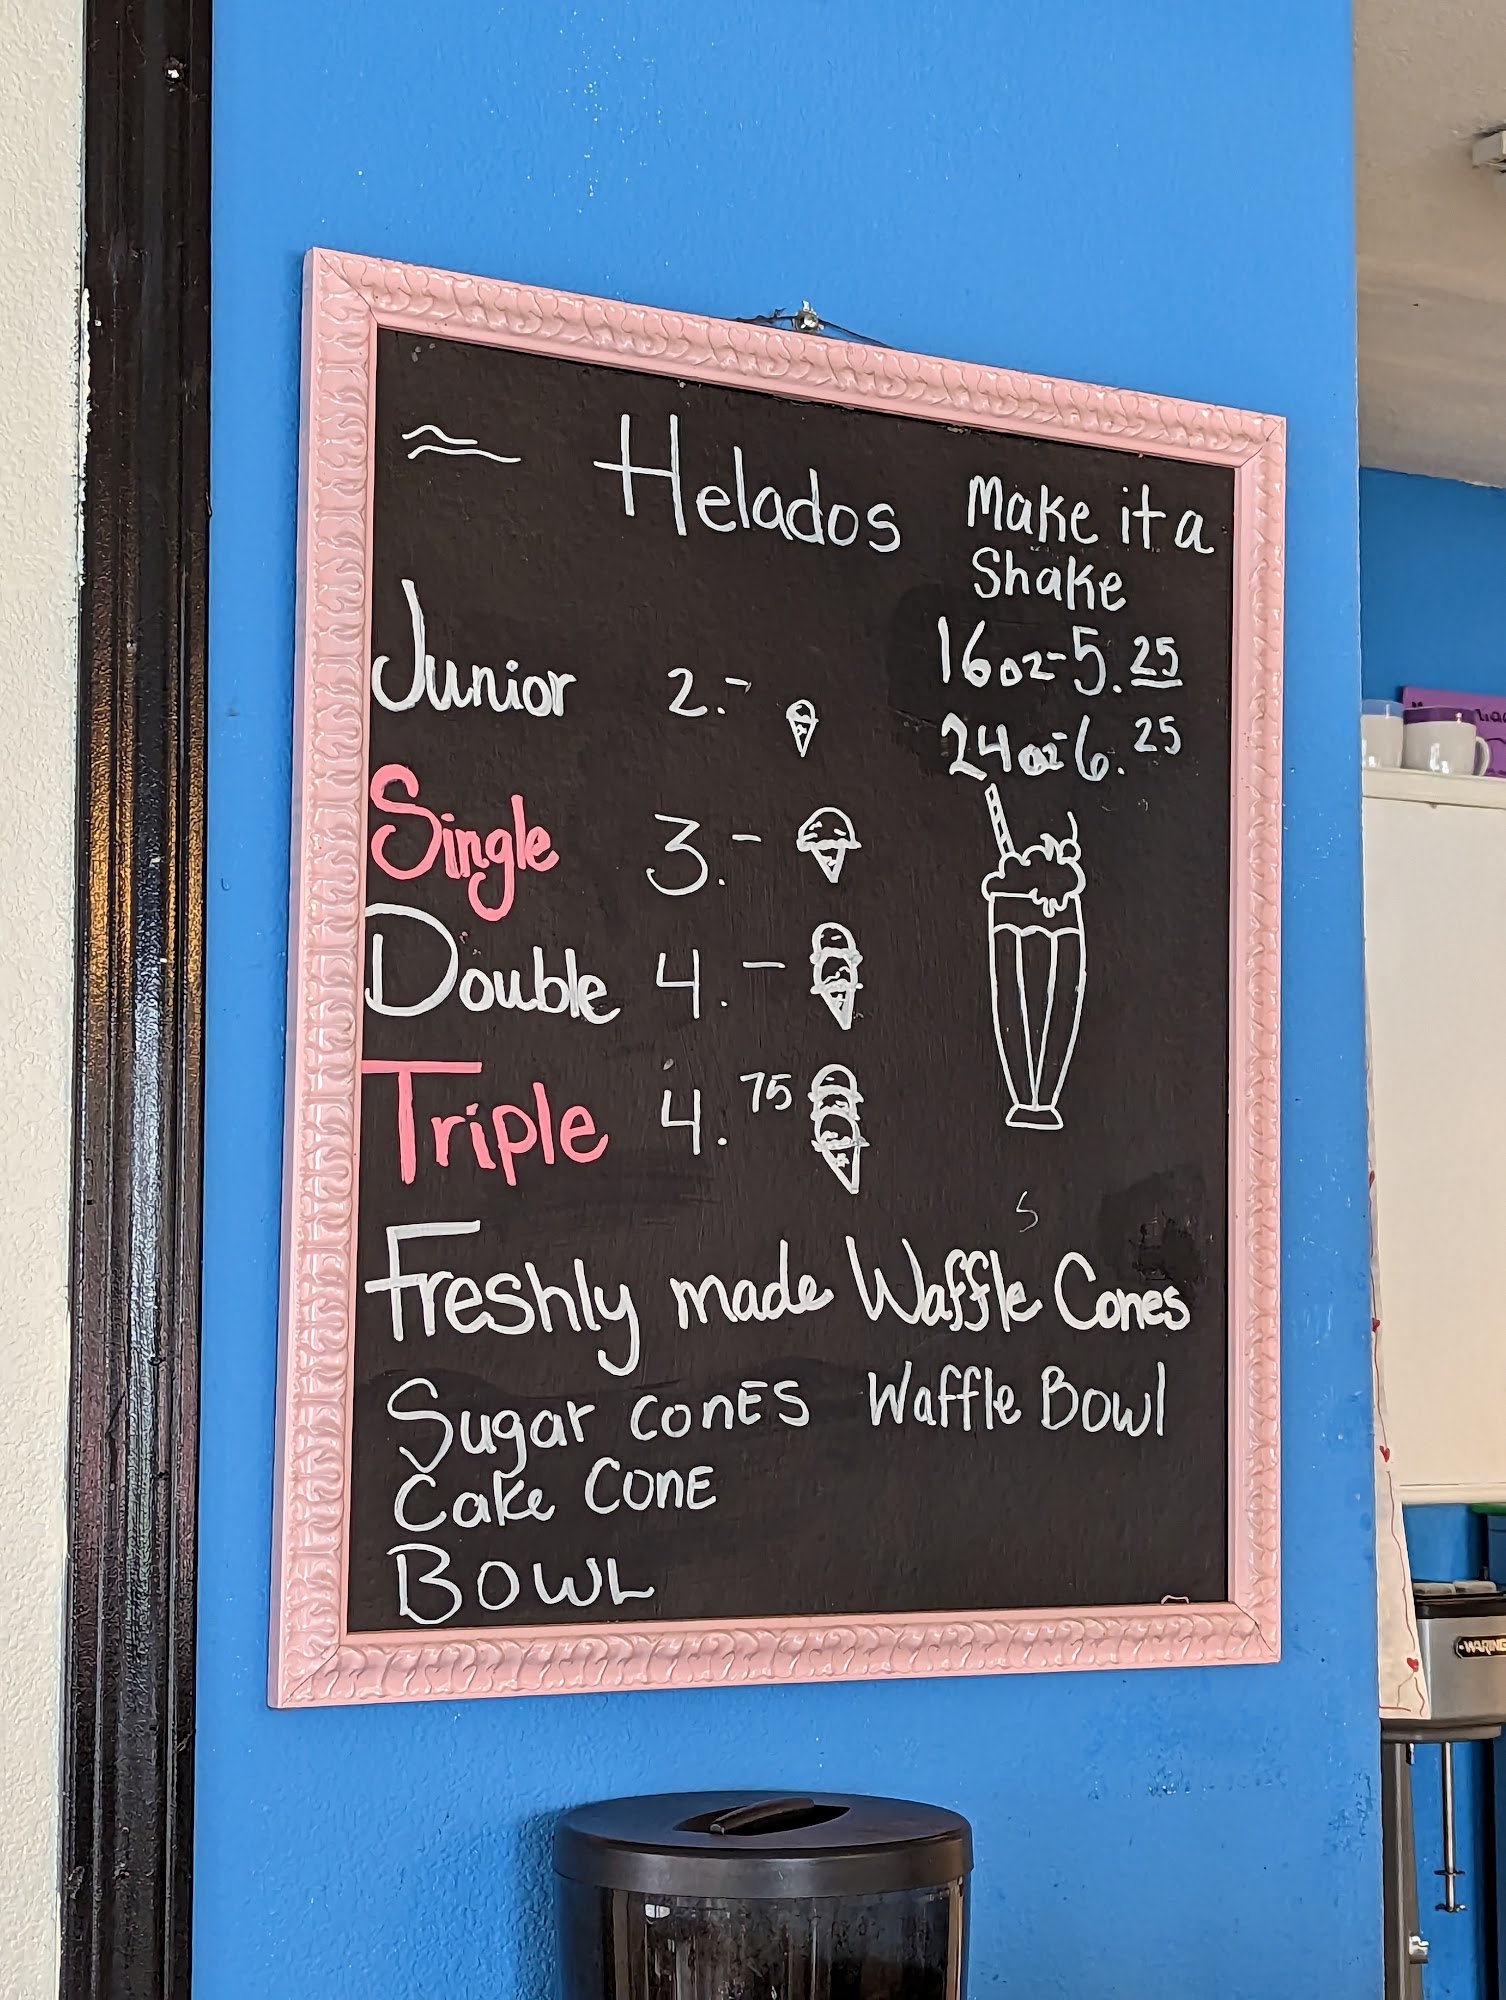 Helados
Make it a
Shake
16oz-5.25
24oz-6.25
Junior 2.-
Single 3.-
Double 4.-
Triple 4.75
Freshly made Waffle Cones
Sugar conES Waffle Bowl
Cake CONE
BOWL
WARING